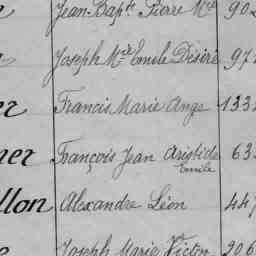 Jean Bapte Pierre Mce 902
Joseph Mce Emile Désiré 972
er Francis Marie Ange 1332
ner François Jean Aristide 632
Emile
llon Alexandre Léon 447
Joseph Marie Victor 206